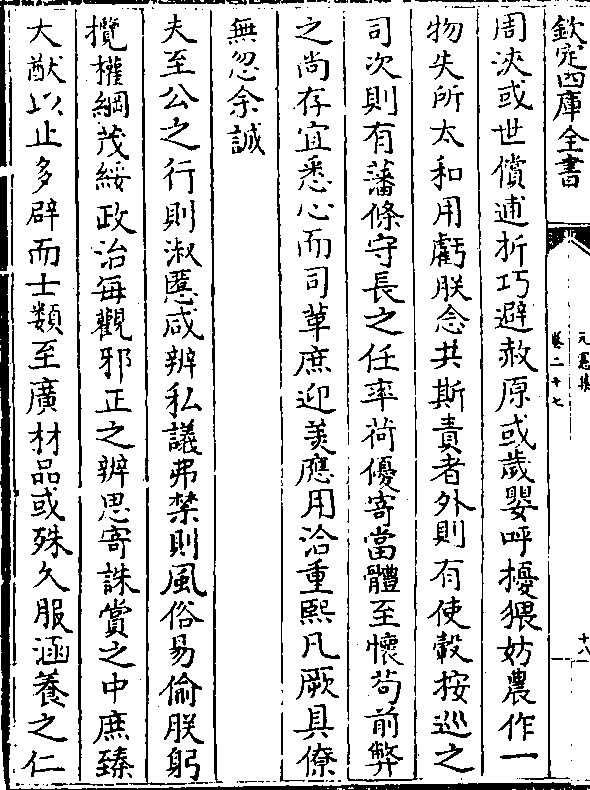 欽定四庫全書
元憲集
卷二十七
十八
周浹或世償逋折巧避赦原或歲嬰呼擾猥妨農作一
物失所太和用虧朕念共斯責者外則有使轂按巡之
司次則有藩條守長之任率荷優寄當體至懷茍前弊
之尚存宜悉心而司革庶迎羙應用洽重熙凡厥具僚
無忽余誠
夫至公之行則淑慝咸辨私議弗禁則風俗易偷朕躬
攬權綱茂綏政治每觀邪正之辨思寄誅賞之中庶臻
大猷以止多辟而士類至廣材品或殊久服涵養之仁